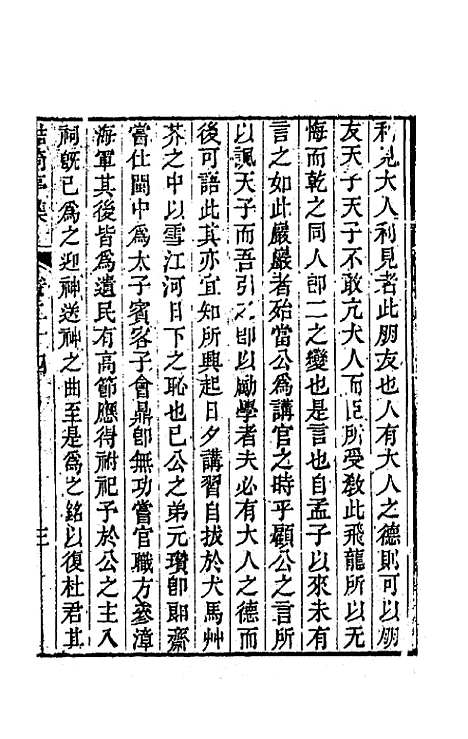 利見大人利見者此朋友也人有大人之德則可以朋
友天子天子不敢亢大人而臣所受敎此飛龍所以无
悔而乾之同人卽二之變也是言也自孟子以來未有
言之如此嚴嚴者殆當公爲講官之時乎顧公之言所
以諷天子而吾引之卽以勵學者夫必有大人之德而
後可語此其亦宜知所興起日夕講習自拔於犬馬艸
芥之中以雪江河日下之恥也已公之弟元瓚卽朙齋
當仕閩中爲太子賓客子會鼎卽無功嘗官職方參漳
海軍其後皆爲遺民有高節應得祔祀予於公之主入
祠旣已爲之迎神送神之曲至是爲之銘以復杜君其
鮚埼亭集
卷二十四
三